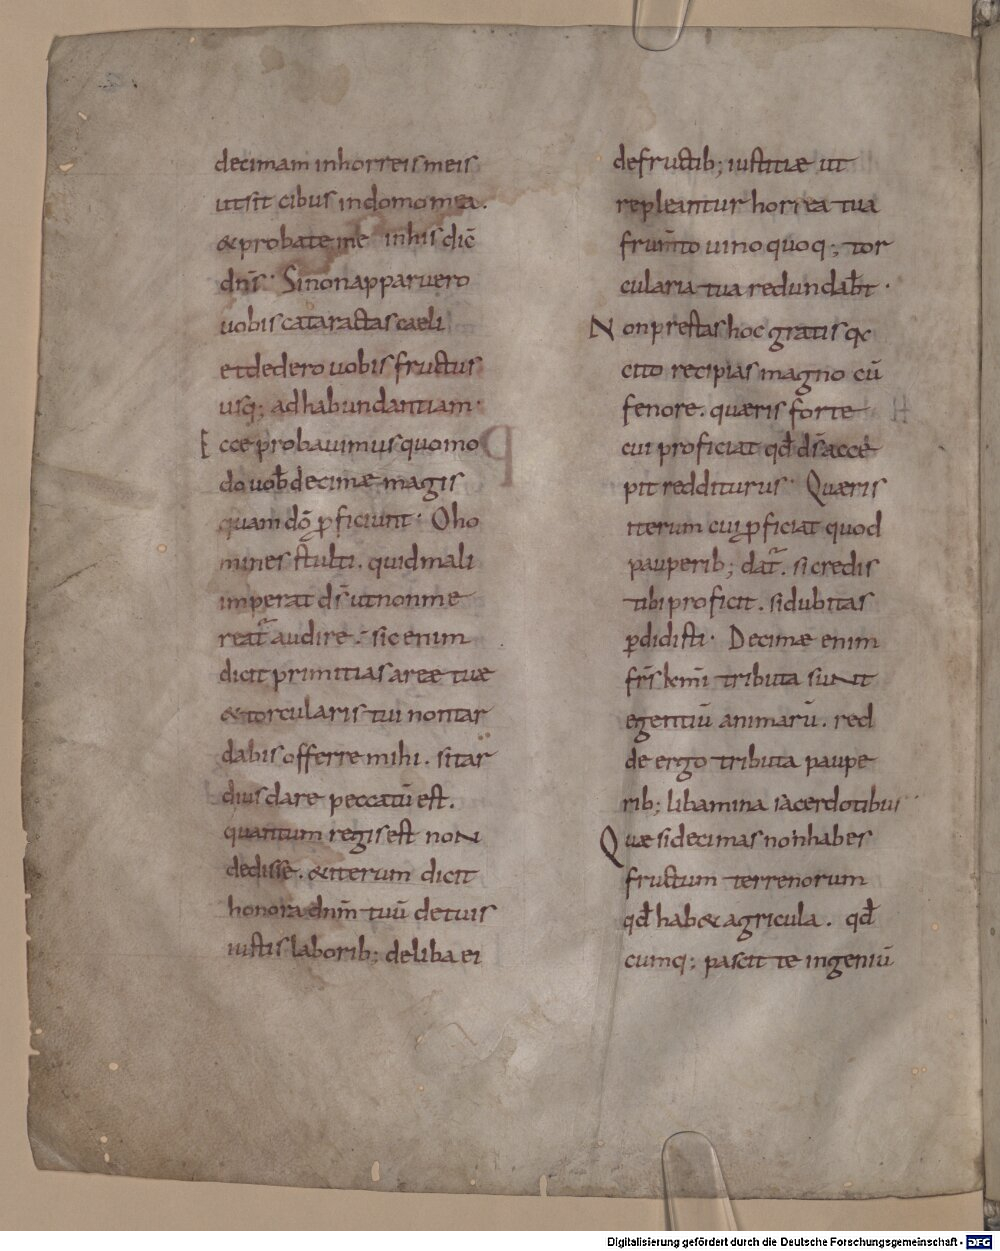 decimam inhorreis meis
utsit cibus indomo mea.
&probate me inhis dic̄
dn̄s· Sinonapparuero
uobis cataractas caeli
et dedero uobis fructus
usq; adhabundantiam·
Ecce probauimus quomo
do uob̄ decimæ magis
quam dō ꝓficiunt· Oho
mines stulti. quid mali
imperat ds̄ ut non me
reat̄ audire. sic enim
dicit primitias areæ tuæ
&torcularis tui non tar
dabis offerre mihi. si tar
dius dare peccatū est.
quantum regis est non
dedisse. &iterum dicit
honora dnm̄ tuū detuis
iustis laborib; deliba ei
defructib; iustitiæ ut
repleantur horrea tua
frum̄to uino quoq; tor
cularia tua redundab̄t·
Non prestas hoc gratis qđ
cito recipias magno cū
fenore. quæris forte
cui proficiat qđ ds̄ acce
pit redditurus· Quæris
iterum cui ꝓficiat quod
pauperib; dat̄. si credis
tibi proficit. si dubitas
ꝑdidisti· Decimæ enim
fr̄s km̄i tributa sunt
egentiū animarū. red
de ergo tributa paupe
rib; libamina sacerdotibus
Quæ si decimas non habes
fructum terrenorum
qđ hab& agricula. qđ
cumq; pascit te ingeniū
Digitalisierung gefördert durch die Deutsche Forschungsgemeinschaft - DFG